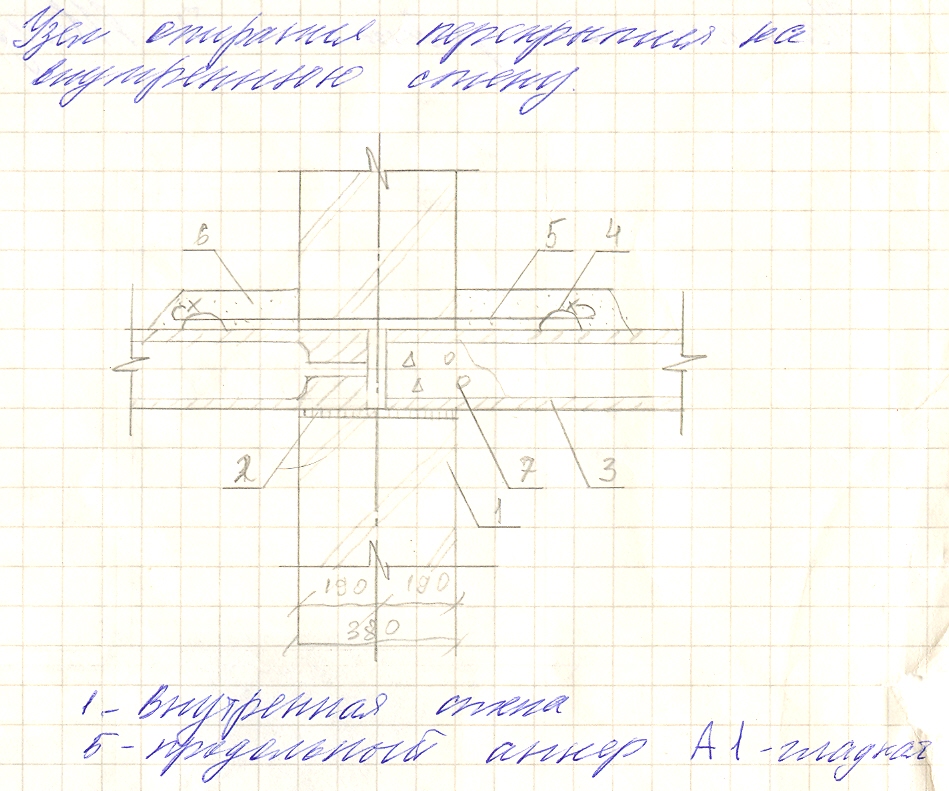 Узел опирания перекрытия на
внутреннюю стену.
6
5
4
2
7
3
1
190
190
380
1- Внутренная стена
5- продольный анкер А1-гладкая